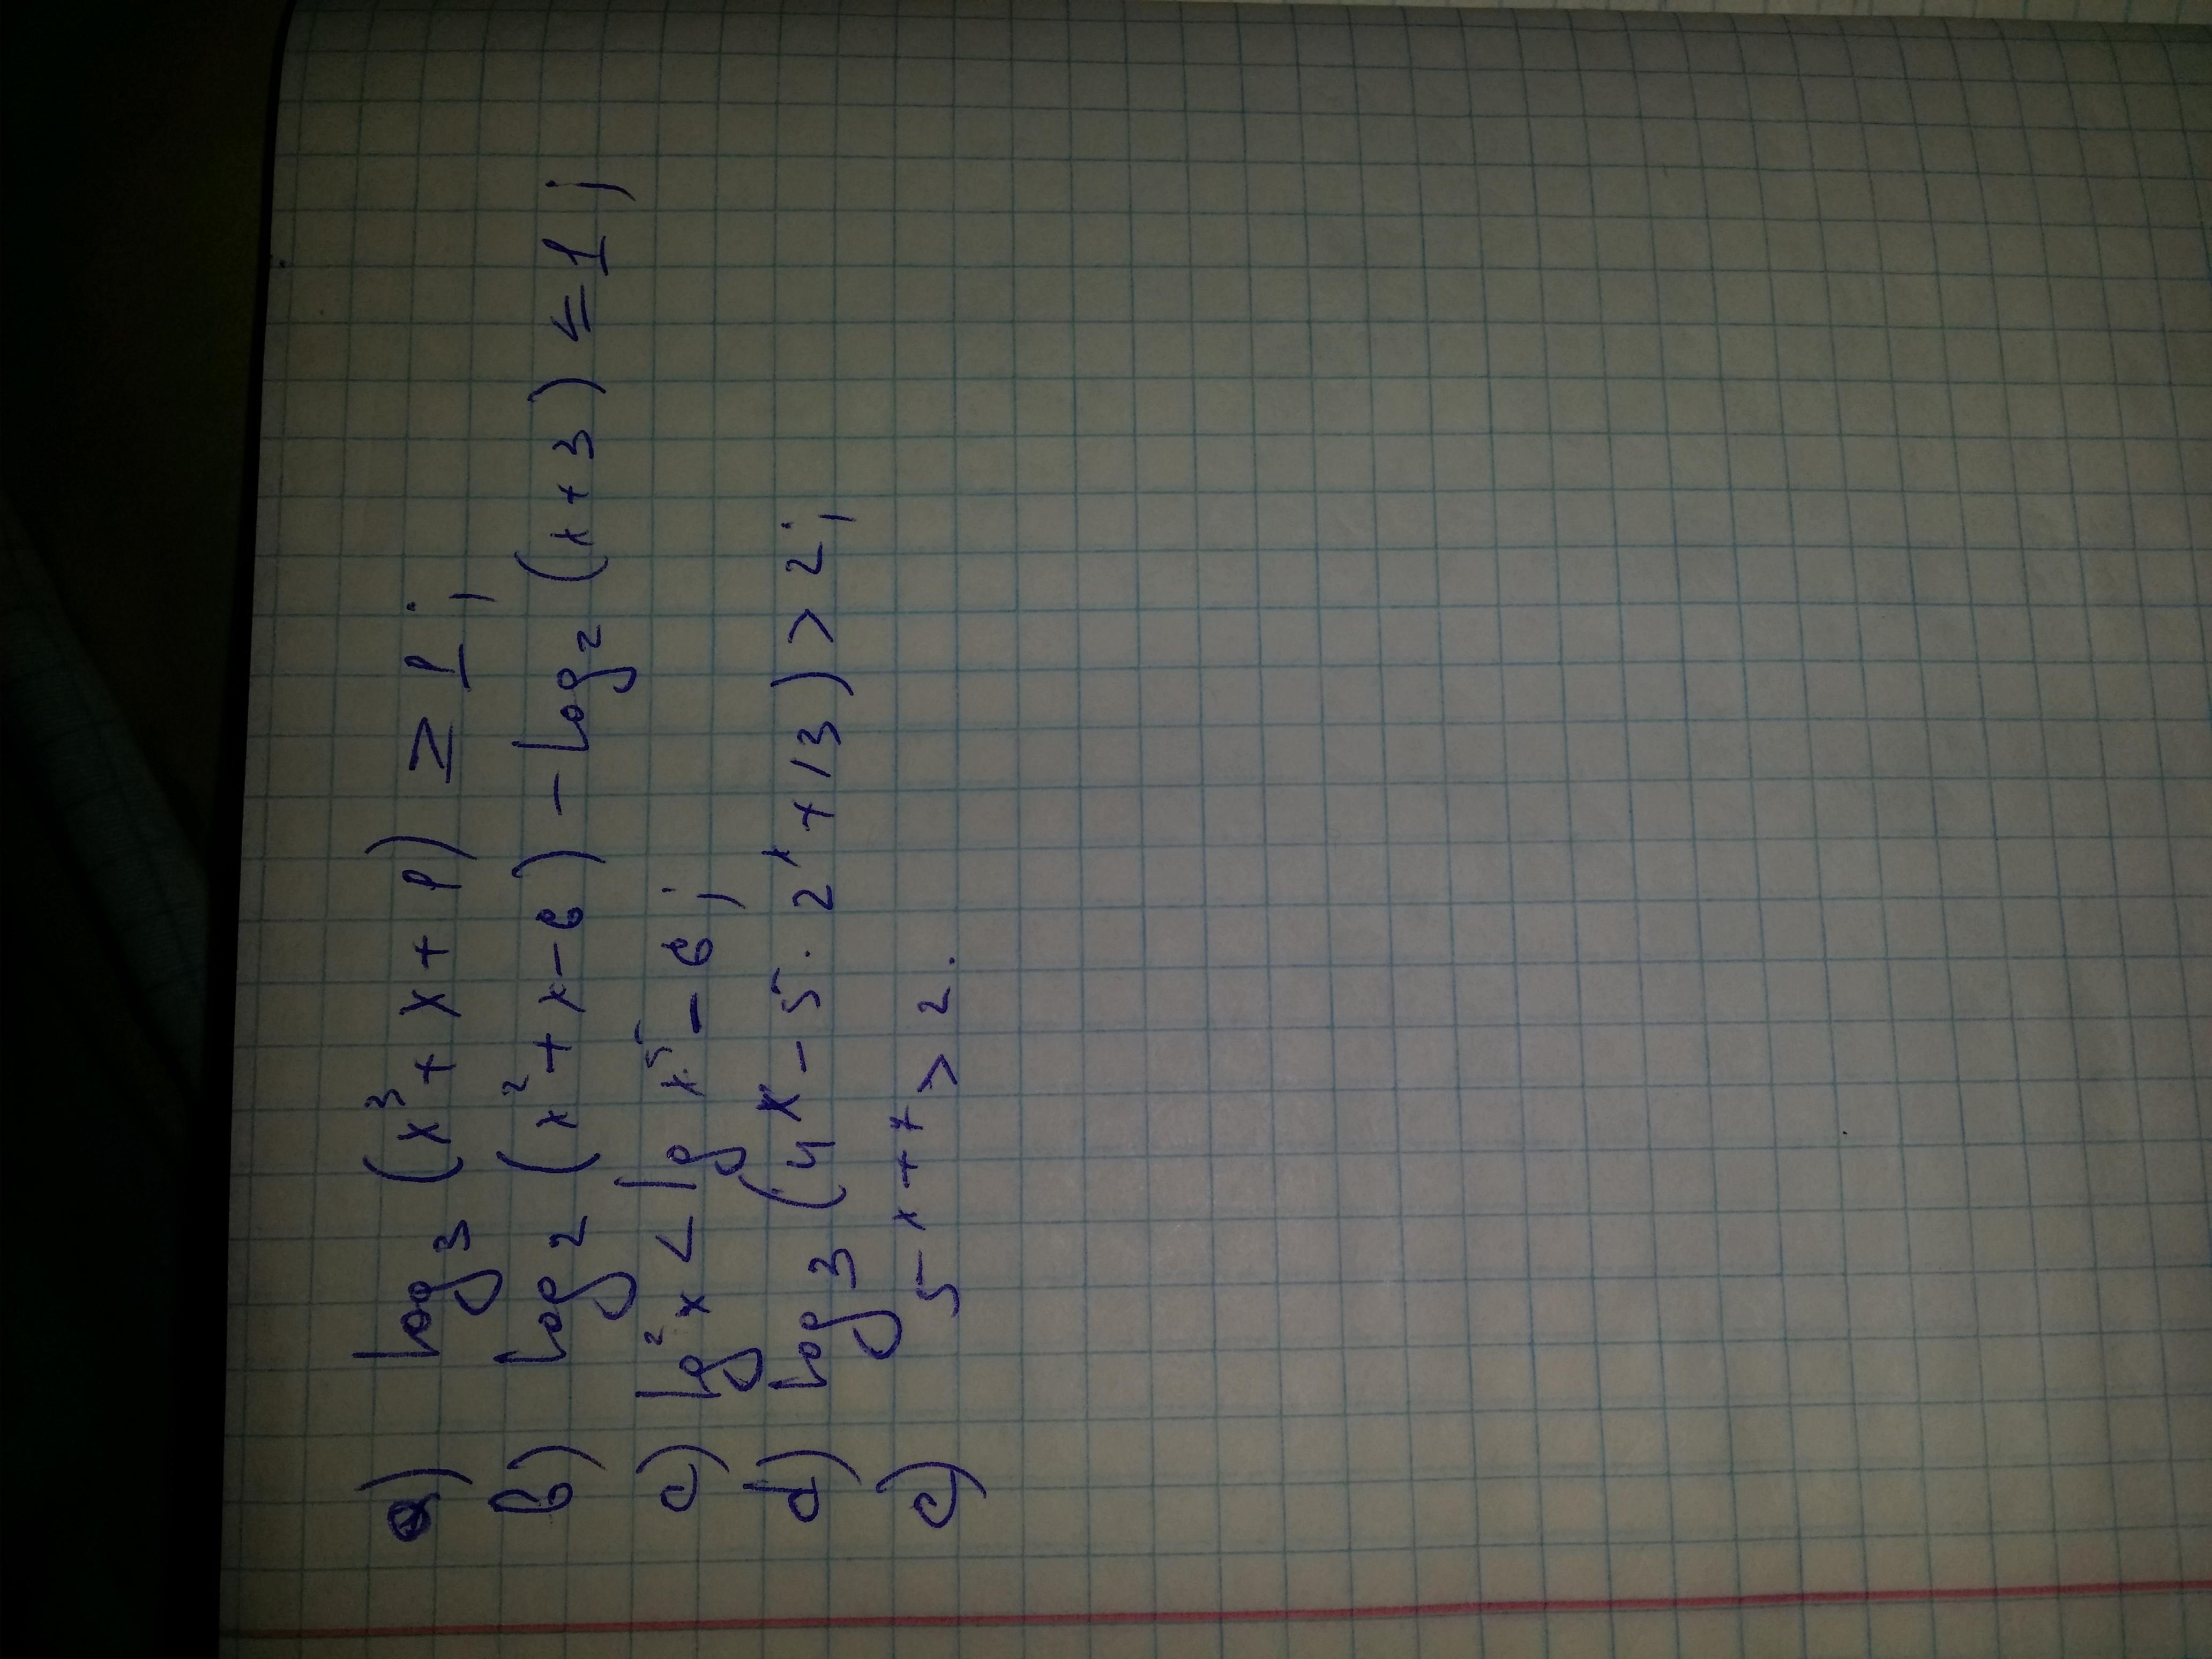 a) log₃ (x³ + x + 1) ≥ 1;
b) log₂ (x² + x - 6) - log₂ (x + 3) ≤ 1;
c) lg² x < lg x⁵ - 6;
d) log₃ (4ˣ - 5 · 2ˣ + 13) > 2;
e) 5ˣ⁺⁷ > 2.